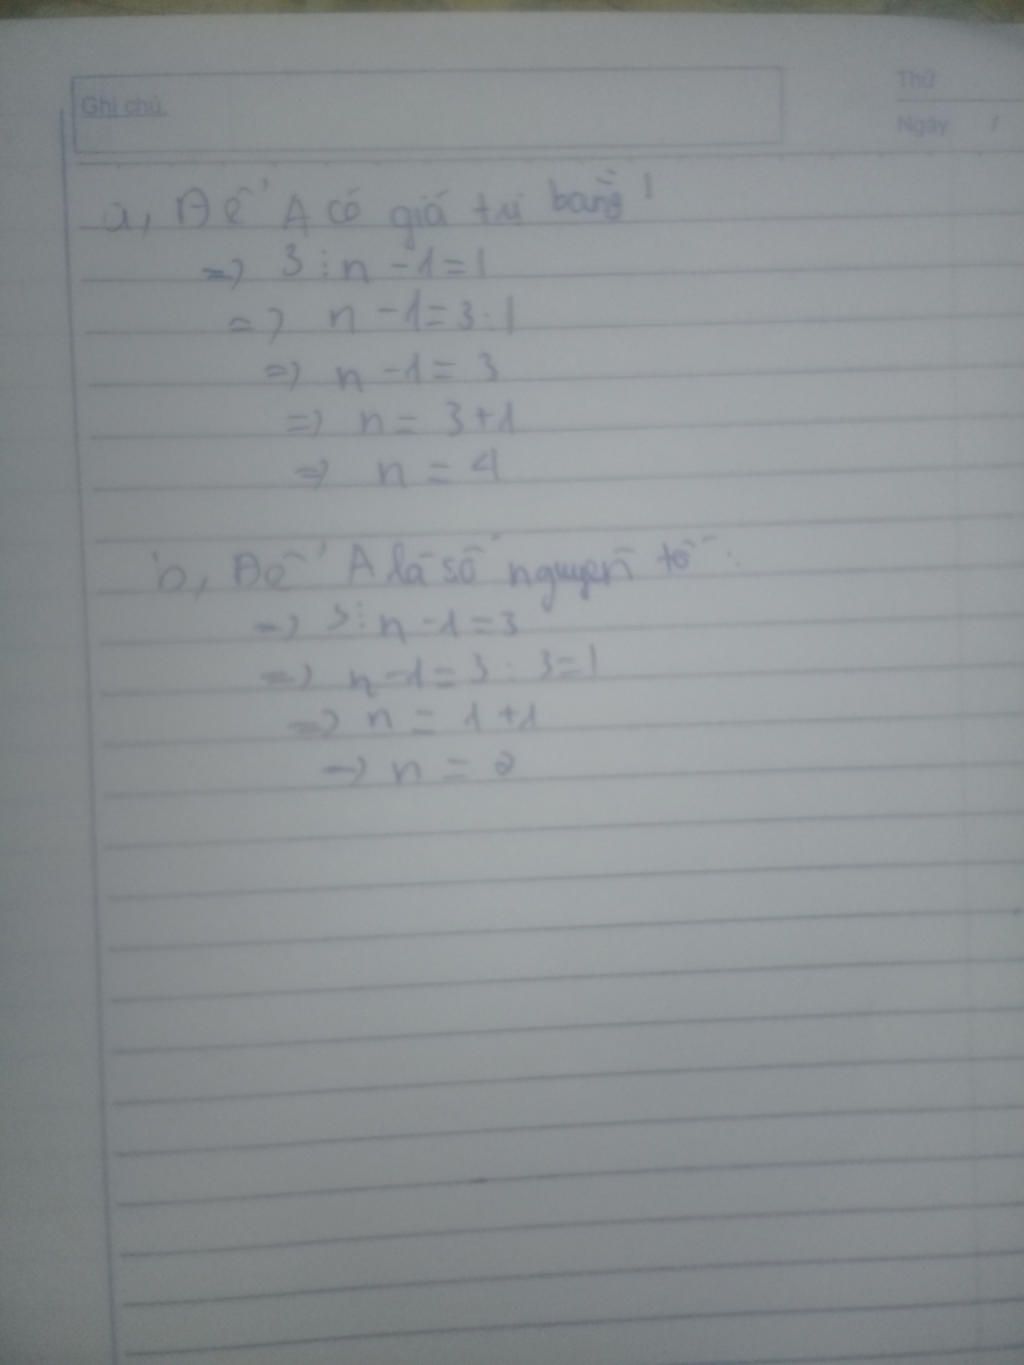 Ghi chú
Thứ
Ngày /
a, Để A có giá trị bằng 1
=> 3 : n - 1 = 1
=> n - 1 = 3 . 1
=> n - 1 = 3
=> n = 3 + 1
=> n = 4
b, Để A là số nguyên tố :
=> 3 : n - 1 = 3
=> n - 1 = 3 : 3 = 1
=> n = 1 + 1
=> n = 2